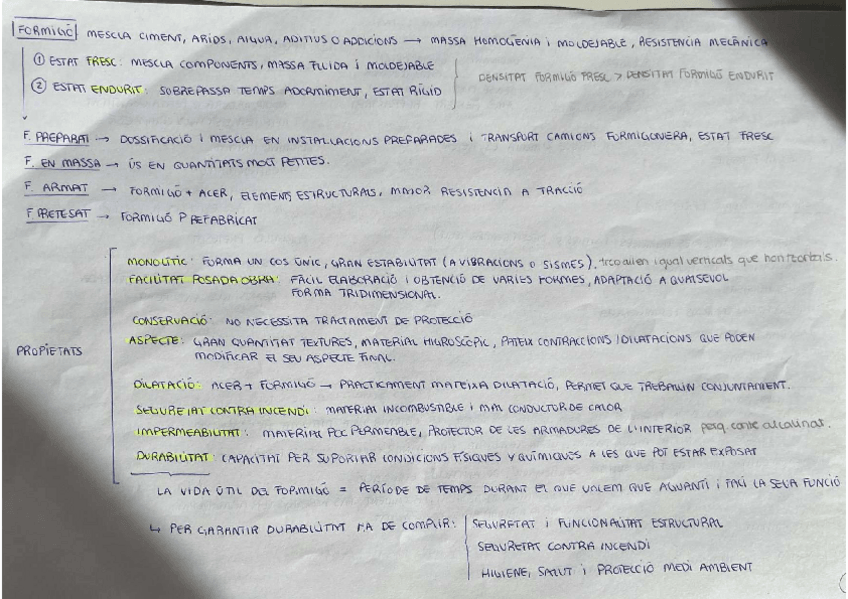 FORMIGÓ MESCLA CIMENT, ARIDS, AIGUA, ADITIUS O ADDICIONS → MASSA HOMOGÈNIA I MOLDEJABLE, RESISTÈNCIA MECÀNICA
① ESTAT FRESC: MESCLA COMPONENTS, MASSA FLUIDA I MOLDEJABLE
② ESTAT ENDURIT: SOBREPASSA TEMPS ADORMIMENT, ESTAT RÍGID
DENSITAT FORMIGÓ FRESC > DENSITAT FORMIGÓ ENDURIT
F. PREPARAT → DOSSIFICACIÓ I MESCLA EN INSTAL·LACIONS PREPARADES I TRANSPORT CAMIONS FORMIGONERA, ESTAT FRESC
F. EN MASSA → ÚS EN QUANTITATS MOLT PETITES.
F. ARMAT → FORMIGÓ + ACER, ELEMENTS ESTRUCTURALS, MAJOR RESISTENCIA A TRACCIÓ
F. PRETESAT → FORMIGÓ PREFABRICAT
MONOLÍTIC: FORMA UN COS ÚNIC, GRAN ESTABILITAT (A VIBRACIONS O SISMES), igual verticals que horitzontals.
FACILITAT POSADA OBRA: FÀCIL ELABORACIÓ I OBTENCIÓ DE VARIES FORMES, ADAPTACIÓ A QUALSEVOL
FORMA TRIDIMENSIONAL.
CONSERVACIÓ: NO NECESSITA TRACTAMENT DE PROTECCIÓ
ASPECTE: GRAN QUANTITAT TEXTURES, MATERIAL HIGROSCÒPIC, PATEIX CONTRACCIONS I DILATACIONS QUE PODEN
MODIFICAR EL SEU ASPECTE FINAL.
PROPIETATS
DILATACIÓ: ACER + FORMIGÓ → PRACTICAMENT MATEIXA DILATACIÓ, PERMET QUE TREBALLIN CONJUNTAMENT.
SEGURETAT CONTRA INCENDI: MATERIAL INCOMBUSTIBLE I MAL CONDUCTOR DE CALOR
IMPERMEABILITAT: MATERIAL POC PERMEABLE, PROTECTOR DE LES ARMADURES DE L'INTERIOR perq. conté alcalinar.
DURABILITAT: CAPACITAT PER SUPORTAR CONDICIONS FÍSIQUES Y QUÍMIQUES A LES QUE POT ESTAR EXPOSAT
LA VIDA ÚTIL DEL FORMIGÓ = PERÍODE DE TEMPS DURANT EL QUE VOLEM QUE AGUANTI I FACI LA SEVA FUNCIÓ
↳ PER GARANTIR DURABILITAT HA DE COMPLIR: SEGURETAT I FUNCIONALITAT ESTRUCTURAL
SEGURETAT CONTRA INCENDI
HIGIENE, SALUT I PROTECCIÓ MEDI AMBIENT